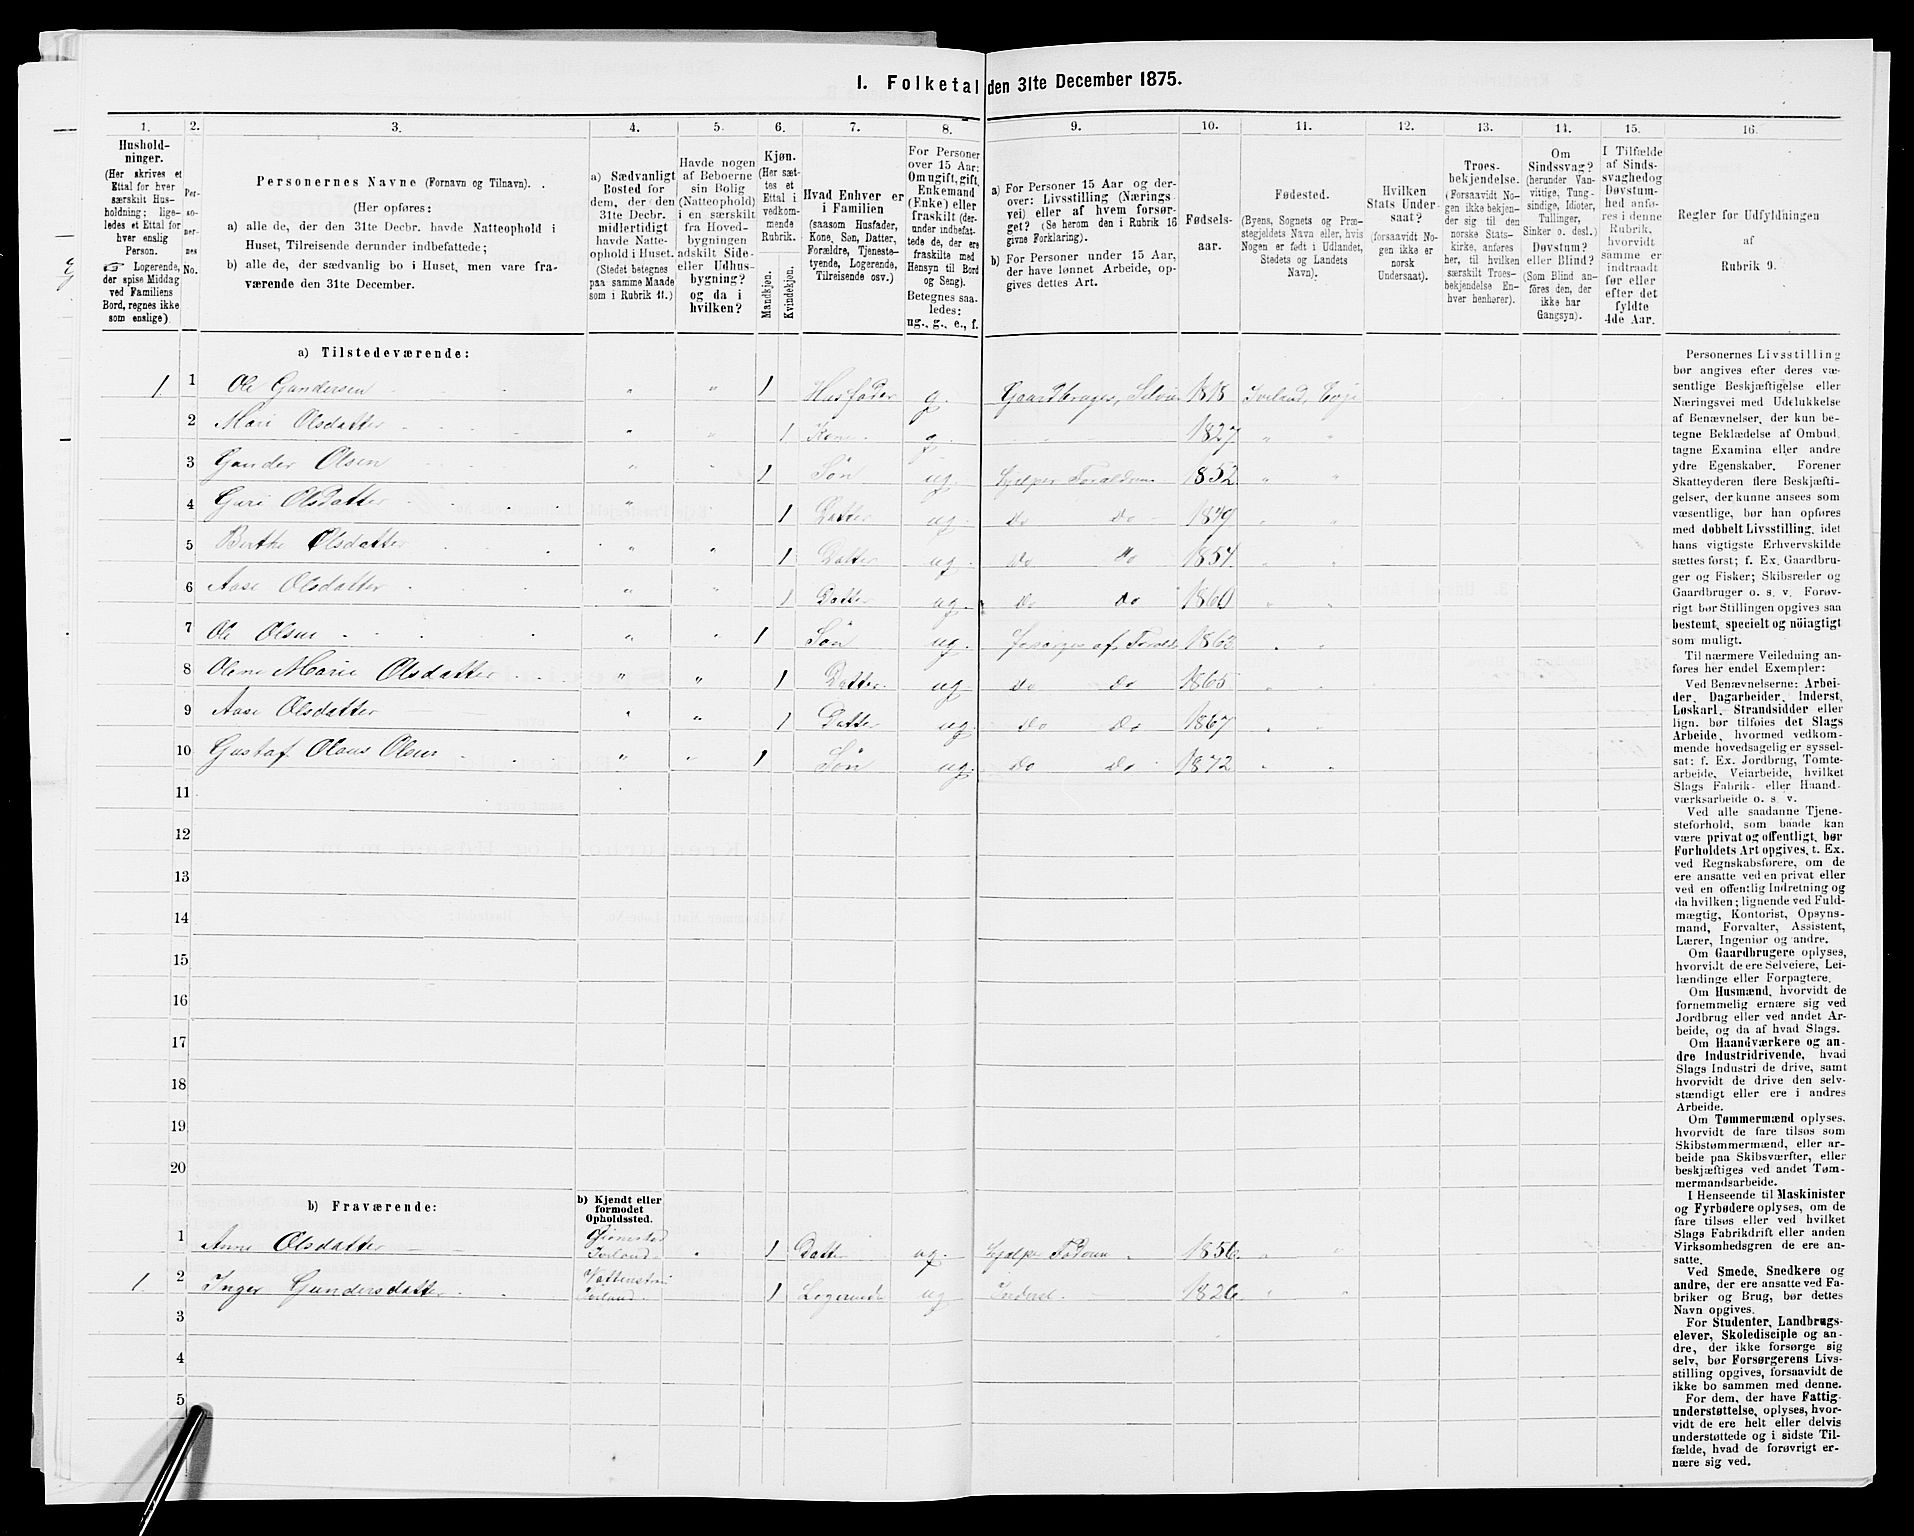 I. Folketal den 31te December 1875.
1. 2. 3. 4. 5. 6. 7. 8. 9. 10. 11. 12. 13. 14. 15. 16.
Hushold-
ninger.
(Her skrives et
Ettal for hver
særskilt Hus-
holdning; lige-
ledes et Ettal for
hver enslig
Person.
☞ Logerende,
der spise Middag
ved Familiens
Bord, regnes ikke
som enslige).
Per-
so-
ner-
nes
No.
Personernes Navne (Fornavn og Tilnavn).
(Her opføres:
a) alle de, der den 31te Decbr. havde Natteophold i
Huset, Tilreisende derunder indbefattede;
b) alle de, der sædvanlig bo i Huset, men vare fra-
værende den 31te December.
a) Sædvanligt
Bosted for
dem, der den
31te Decbr.
midlertidigt
havde Natte-
ophold i Huset.
(Stedet betegnes
paa samme Maade
som i Rubrik 11.)
Havde nogen
af Beboerne
sin Bolig
(Natteophold)
i en særskilt
fra Hoved-
bygningen
adskilt Side-
eller Udhus-
bygning?
og da i
hvilken?
Kjøn.
(Her sæt-
tes et
Ettal i
vedkom-
mende
Rubrik.
Mandkjøn.
Kvindekjøn.
Hvad Enhver er
i Familien
(saasom Husfader,
Kone, Søn, Datter,
Forældre, Tjeneste-
tyende, Logerende,
Tilreisende osv.)
For Personer
over 15 Aar:
Om ugift, gift,
Enkemand
(Enke) eller
fraskilt (der-
under indbefat-
tede de, der ere
fraskilte med
Hensyn til Bord
og Seng).
Betegnes saa-
ledes:
ug., g., e., f.
a) For Personer 15 Aar og der-
over: Livsstilling (Nærings-
vei) eller af hvem forsør-
get? (Se herom den i Rubrik 16
givne Forklaring).
b) For Personer under 15 Aar,
der have lønnet Arbeide, op-
gives dettes Art.
Fødsels-
aar.
Fødested.
(Byens, Sognets og Præ-
stegjeldets Navn eller, hvis
Nogen er født i Udlandet,
Stedets og Landets
Navn).
Hvilken
Stats Under-
saat?
(forsaavidt No-
gen ikke er
norsk
Undersaat).
Troes-
bekjendelse.
(Forsaavidt No-
gen ikke bekjen-
der sig til den
norske Stats-
kirke, anføres
her, til hvilken
særskilt Troes-
bekjendelse En-
hver henhører).
Om
Sindssvag?
(herunder Van-
vittige, Tung-
sindige, Idioter,
Tullinger,
Sinker o. desl.)
Døvstum?
eller Blind?
(Som Blind an-
føres den, der
ikke har
Gangsyn).
I Tilfælde
af Sinds-
svaghed og
Døvstum-
hed anfø-
res i denne
Rubrik,
hvorvidt
samme er
indtraadt
før eller
efter det
fyldte
4de Aar.
Regler for Udfyldningen
af
Rubrik 9.
a) Tilstedeværende:
1. 1 Ole Gundersen " " 1 Husfader g. Gaardbruger, 1818 Iveland, Evje
2 Mari Olsdatter " " 1 Kone g. 1827 " "
3 Gunder Olsen " " 1 Søn ug. Hjelper Forældrene 1852 " "
4 Guri Olsdatter " 1 Datter ug. Do Do 1849 " "
5 Berthe Olsdatter " " 1 Datter ug. Do Do 1854 " "
6 Aase Olsdatter " " 1 Datter ug. Do Do 1860 " "
7 Ole Olsen " " 1 Søn ug. af 1863 " "
8 Olene Marie Olsdatter " " 1 Datter ug. Do Do 1865 " "
9 Aase Olsdatter " " 1 Datter ug. Do Do 1867 " "
10 Gustaf Olaus Olsen " " 1 Søn ug. Do Do 1872 " "
11
12
13
14
15
16
17
18
19
20
b) Fraværende:
b) Kjendt eller
formodet
Opholdssted.
1 Anne Olsdatter Iveland " 1 Datter ug. Hjelper 1856 " "
1. 2 Inger Gundersdatter Iveland 1 Logerende ug Inderst 1826 " "
3
4
5
Personernes Livsstilling
bør angives efter deres væ-
sentlige Beskjæftigelse eller
Næringsvei med Udelukkelse
af Benævnelser, der kun be-
tegne Beklædelse af Ombud,
tagne Examina eller andre
ydre Egenskaber. Forener
Skatteyderen flere Beskjæfti-
gelser, der kunne ansees som
væsentlige, bør han opføres
med dobbelt Livsstilling, idet
hans vigtigste Erhvervskilde
sættes først; f. Ex. Gaardbru-
ger og Fisker; Skibsreder og
Gaardbruger o. s. v. Forøv-
rigt bør Stillingen opgives saa
bestemt, specielt og nöiagtigt
som muligt.
Til nærmere Veiledning an-
føres her endel Exempler:
Ved Benævnelserne: Arbei-
der, Dagarbeider, Inderst,
Løskarl, Strandsidder eller
lign. bør tilføies det Slags
Arbeide, hvormed vedkom-
mende hovedsagelig er syssel-
sat: f. Ex. Jordbrug, Tomte-
arbeide, Veiarbeide, hvilket
Slags Fabrik- eller Haand-
værksarbeide o. s. v.
Ved alle saadanne Tjene-
steforhold, som baade kan
være privat og offentligt, bør
Forholdets Art opgives, t. Ex.
ved Regnskabsførere, om de
ere ansatte ved en privat eller
ved en offentlig Indretning og
da hvilken; lignende ved Fuld-
mægtig, Kontorist, Opsyns-
mand, Forvalter, Assistent,
Lærer, Ingeniør og andre.
Om Gaardbrugere oplyses,
hvorvidt de ere Selveiere, Lei-
lændinge eller Forpagtere.
Om Husmænd, hvorvidt de
fornemmelig ernære sig ved
Jordbrug eller ved andet Ar-
beide, og da af hvad Slags.
Om Haandværkere og an-
dre Industridrivende, hvad
Slags Industri de drive, samt
hvorvidt de drive den selv-
stændigt eller ere i andres
Arbeide.
Om Tømmermænd oplyses,
hvorvidt de fare tilsøs som
Skibstømmermænd, eller ar-
beide paa Skibsværfter, eller
beskjæftiges ved andet Tøm-
mermandsarbeide.
I Henseende til Maskinister
og Fyrbødere oplyses, om de
fare tilsøs eller ved hvilket
Slags Fabrikdrift eller anden
Virksomhedsgren de ere an-
satte.
Ved Smede, Snedkere og
andre, der ere ansatte ved Fa-
briker og Brug, bør dettes
Navn opgives.
For Studenter, Landbrugs-
elever, Skoledisciple og an-
dre, der ikke forsørge sig
selv, bør Forsørgerens Livs-
stilling opgives, forsaavidt de
ikke bo sammen med denne.
For dem, der have Fattig-
understøttelse, oplyses, hvor-
vidt de ere helt eller delvis
understøttede og i sidste Til-
fælde, hvad de forøvrigt er-
nære sig ved.